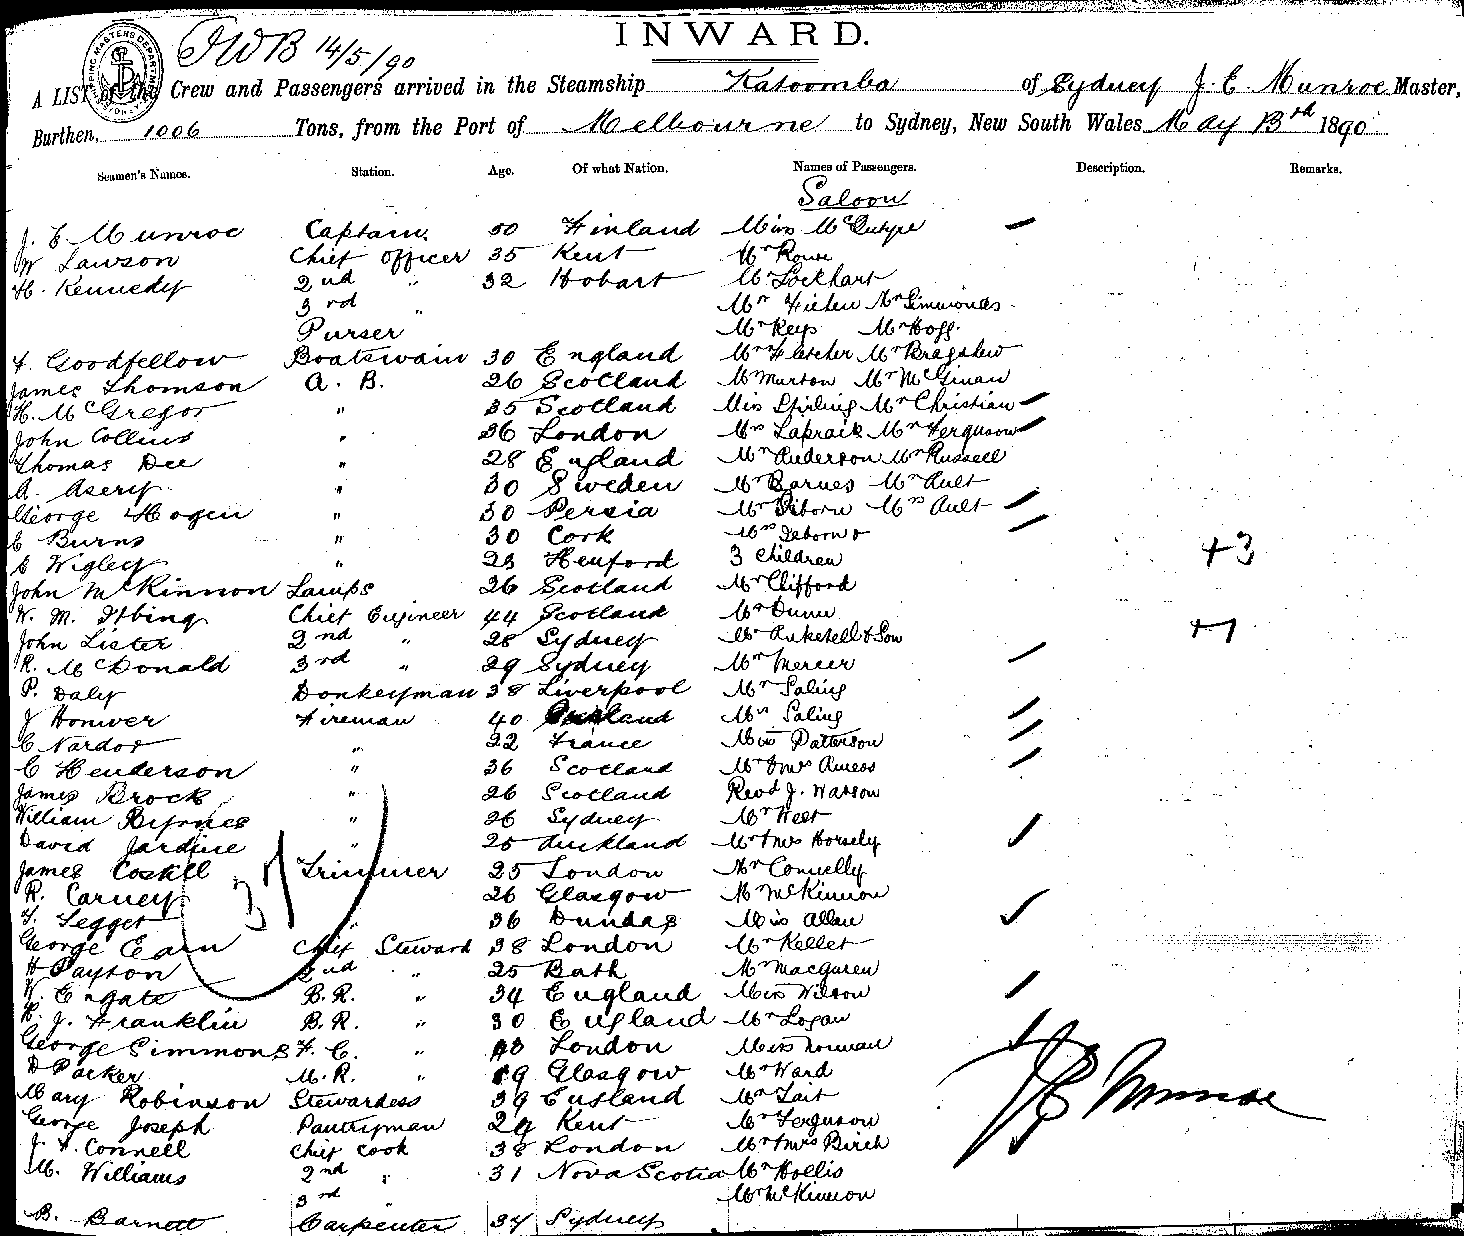 INWARD.
JWB 14/5/90
A LIST of the Crew and Passengers arrived in the Steamship Katoomba of Sydney J. E. Munroe Master,
Burthen, 1006 Tons, from the Port of Melbourne to Sydney, New South Wales May 13th 1890
Seamen's Names. Station. Age. Of what Nation. Names of Passengers. Description. Remarks.
Saloon
J. E Munroe Captain 50 Finland Miss McIntyre
W Lawson Chief Officer 35 Kent Mr Rowe
H. Kennedy 2nd " 32 Hobart Mr Lockhart
3rd " Mr Mr Simmonds
Purser Mr Keys Mr Hogg
F. Goodfellow Boatswain 30 England Mr Fletcher Mr Bragshew
James Thomson A. B. 26 Scotland Mr Murton Mr McGinan
H. McGregor " 35 Scotland Miss Stirling Mr Christian
John Collins " 36 London Mrs Lapraik Mr Ferguson
Thomas Dee " 28 England Mr Anderson Mr Russell
A. Asery " 30 Sweden Mr Barnes Mr Ault
George Hogen " 30 Persia Mr Osborn Mrs Ault
E Burns " 30 Cork Mrs Osborn &
E Wigley " 23 3 Children +3
John McKinnon Lamps 26 Scotland Mr Clifford
W. M. Chief Engineer 44 Scotland Mr Dunn
John Lister 2nd " 28 Sydney Mr & Son +1
R. McDonald 3rd " 29 Sydney Mr Mercer
P. Daly Donkeyman 38 Liverpool Mr Saling
J Fireman 40 Mrs Saling
C Nardot " 22 France Miss Patterson
C Henderson " 36 Scotland Mr & Mrs Amess
James Brock " 26 Scotland Revd J. Watson
William Byrnes " 26 Sydney Mr West
David Jardine " 25 Auckland Mr & Mrs Hornsby
James Coskll Trimmer 25 London Mr Connelly
R. Carney 26 Glasgow Mr McKinnon
T. Legget " 36 Dundas Miss Allan
George Earn Chief Steward 38 London Mr Kellet
H Payton 2nd " 25 Bath Mr Macqueen
W. Engate B.R. " 34 England Miss Wilson
H. J. Franklin B.R. " 30 England Mr Logan
George Simmons F. C. " London Miss Norman
D Parker M. R. " 19 Glasgow Mr Ward
Mary Robinson Stewardess 39 England Mr Tait
George Joseph Pantryman 29 Kent Mr Ferguson
J. F. Connell Chief Cook 38 London Mr & Mrs Birch
M. Williams 2nd " 31 Nova Scotia Mr Hollis
3rd " Mr McKinnon
B. Barnett Carpenter 34 Sydney
J E Munroe